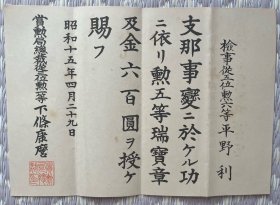 檢事從六位勲六等平野利
支那事變ニ於ケル功
ニ依リ勲五等瑞寶章
及金六百圓ヲ授ケ
賜フ
昭和十五年四月二十九日
賞勲局總裁從三位勲二等下條康麿